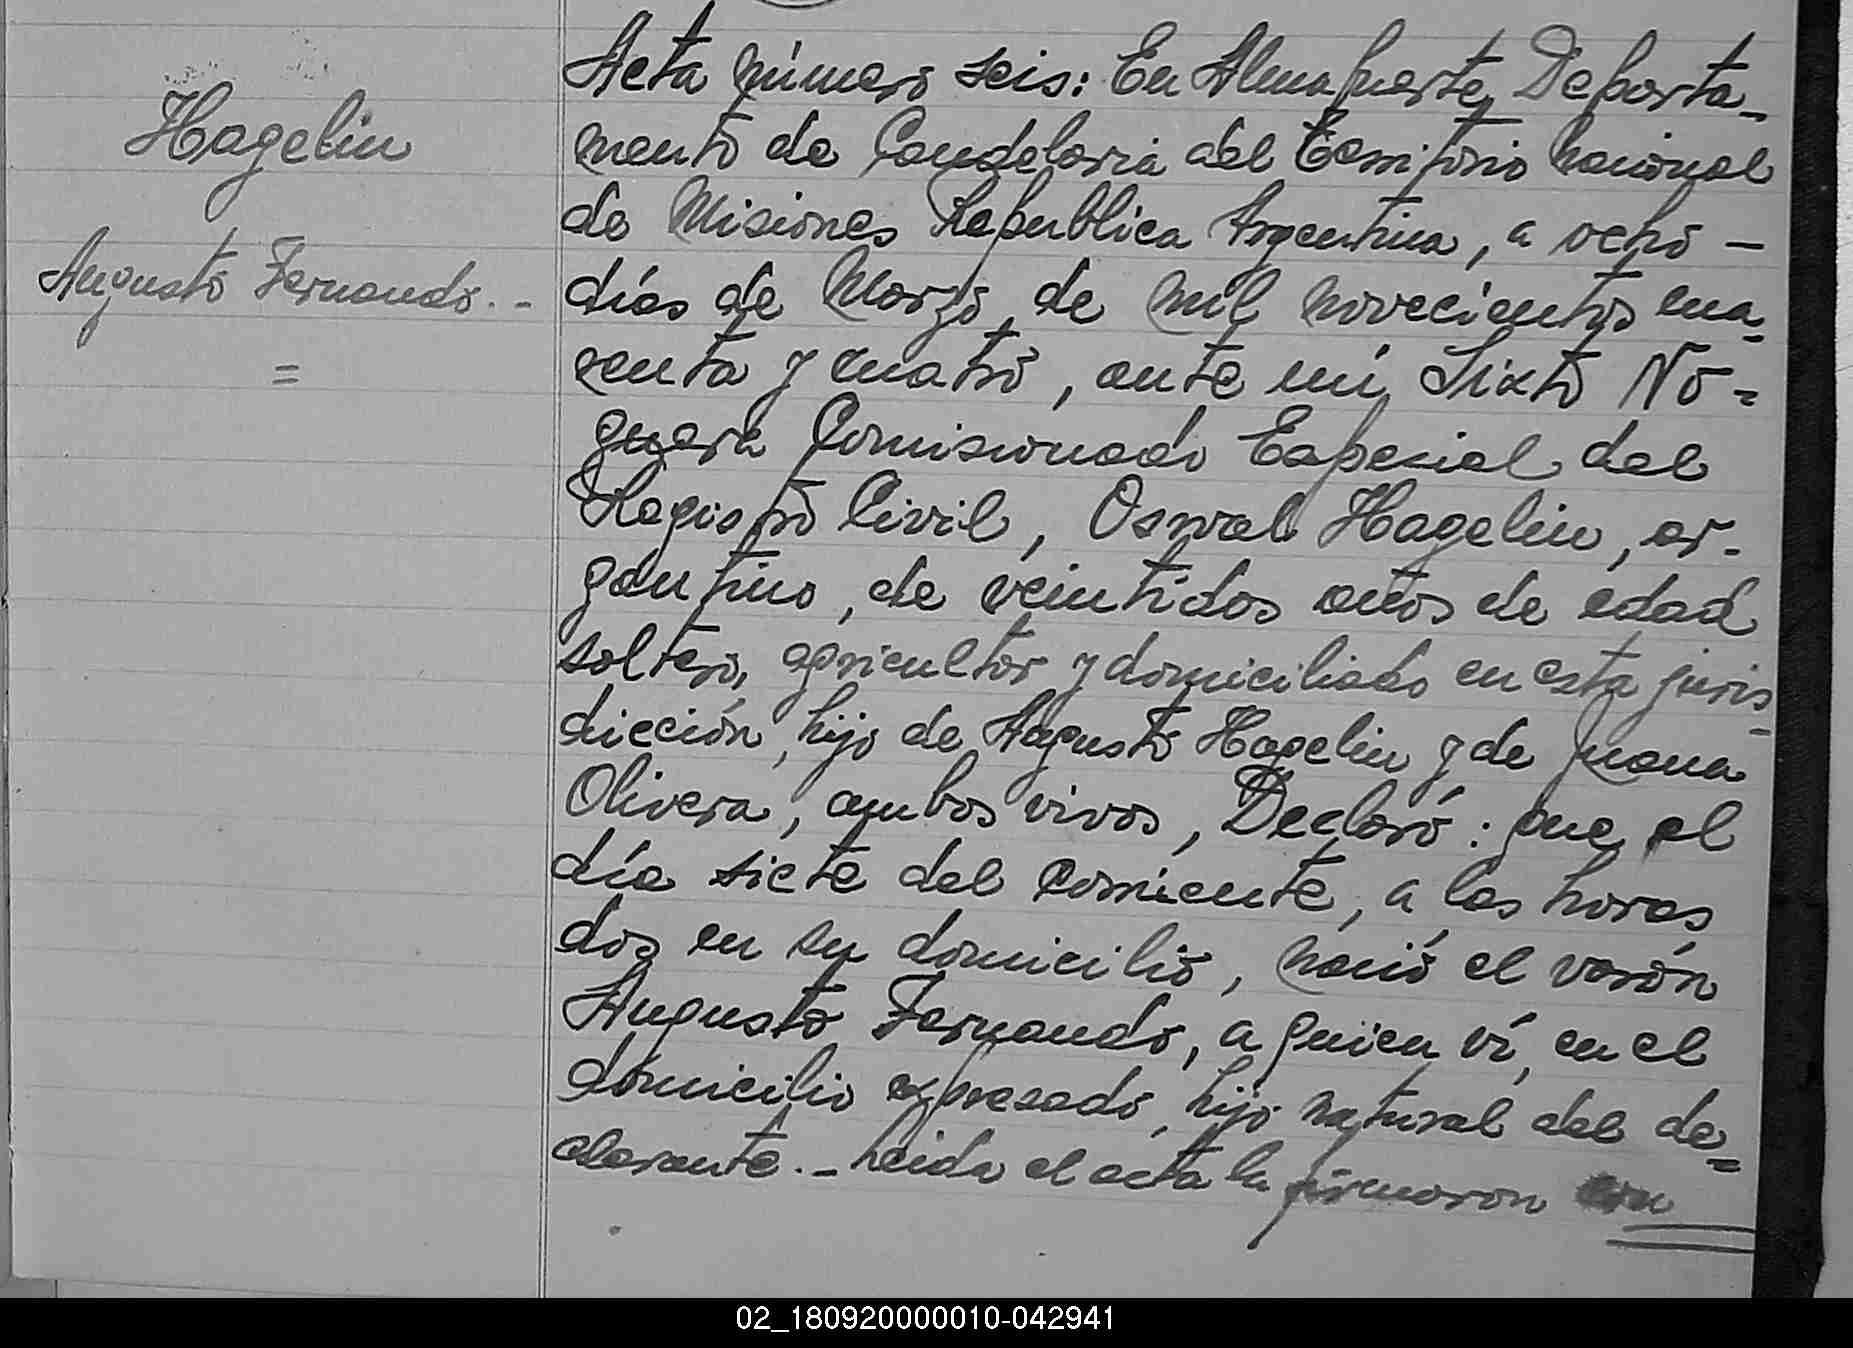 Hagelin
Augusto Fernando.-
=
Acta número seis: En Almafuerte, Departa-
mento de Candelaria del Territorio Nacional
de Misiones República Argentina, a ocho -
días de Marzo, de mil novecientos cua-
renta y cuatro, ante mí, Sixto No=
guera Comisionado Especial del
Registro Civil, Osval Hagelin, ar-
gentino, de veintidos años de edad
soltero, agricultor y domiciliado en esta juris-
dicción, hijo de Augusto Hagelin y de Juana
Olivera, ambos vivos, Declaró: que el
día siete del corriente, a las horas
dos en su domicilio, nació el varón
Augusto Fernando, a quien ví, en el
domicilio expresado, hijo natural del de=
clarante.- Leida el acta la firmaron con
02_180920000010-042941